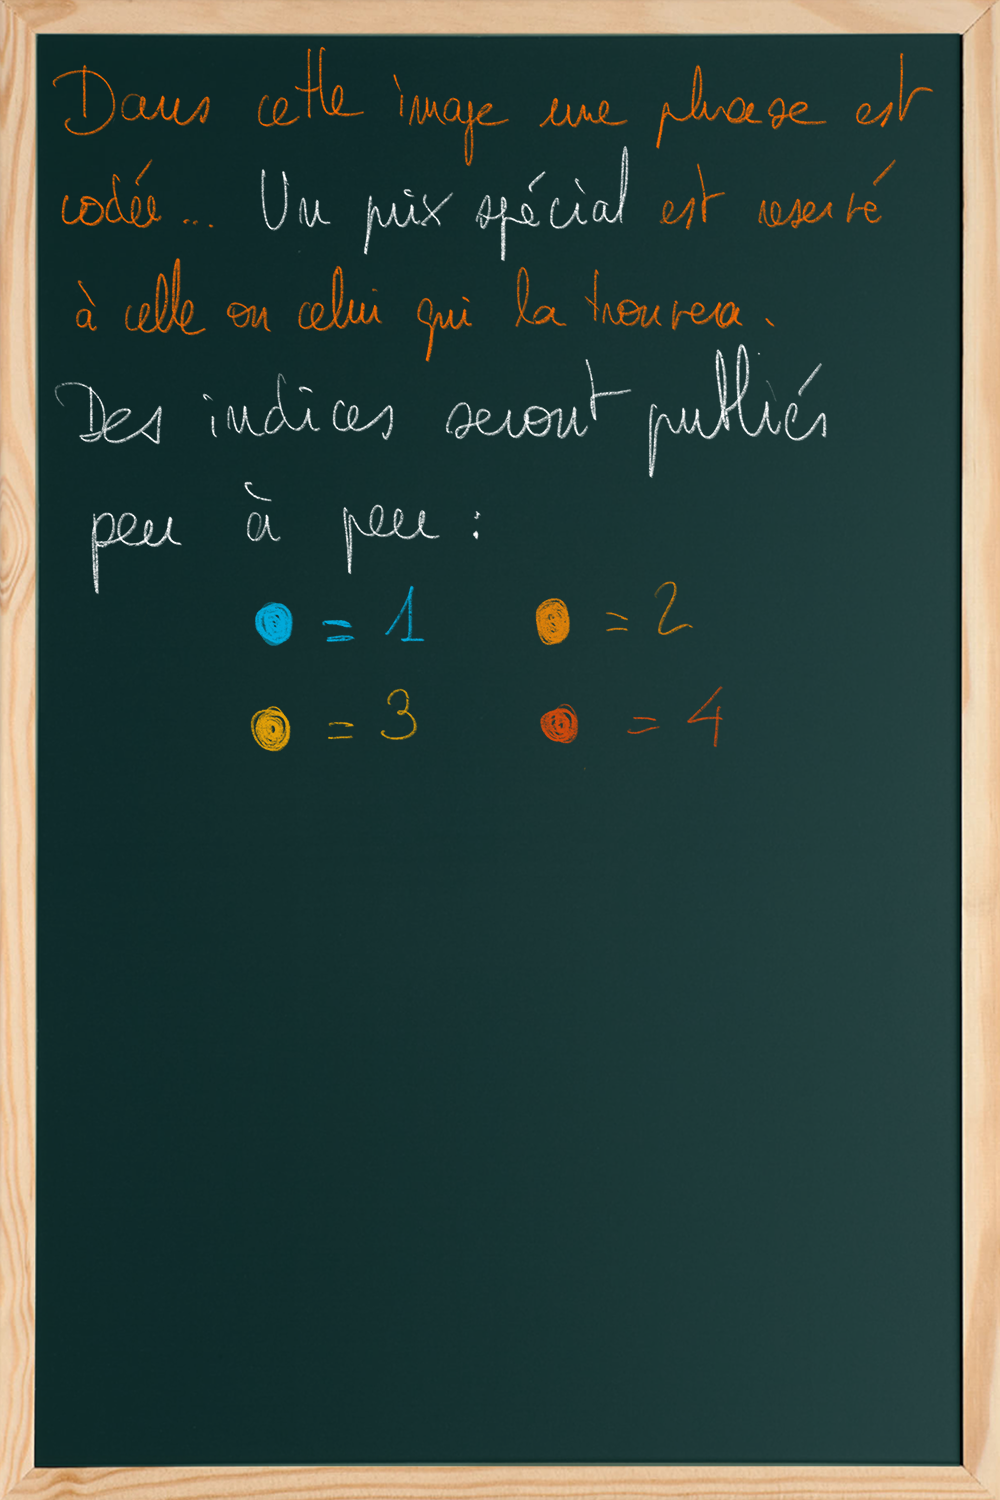 Dans cette image une phrase est
codée... Un prix spécial est reservé
à celle ou celui qui la trouvera.
Des indices seront publiés
peu à peu :
= 1 = 2
= 3 = 4